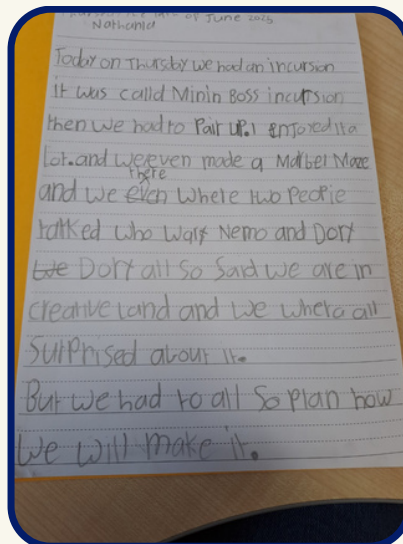 of June 2025
Nathania
Today on Thursby we had an incursion
it was calld Minin Boss incursion
then we had to Pair up. I enjoyed it a
Lot. and we even made a Marbel Maze
and we even there Where two People
talked who wars Nemo and Dory
we Dory all so said we are in
creative Land and we where all
Surprised about it.
But we had to all so plan how
we will make it.